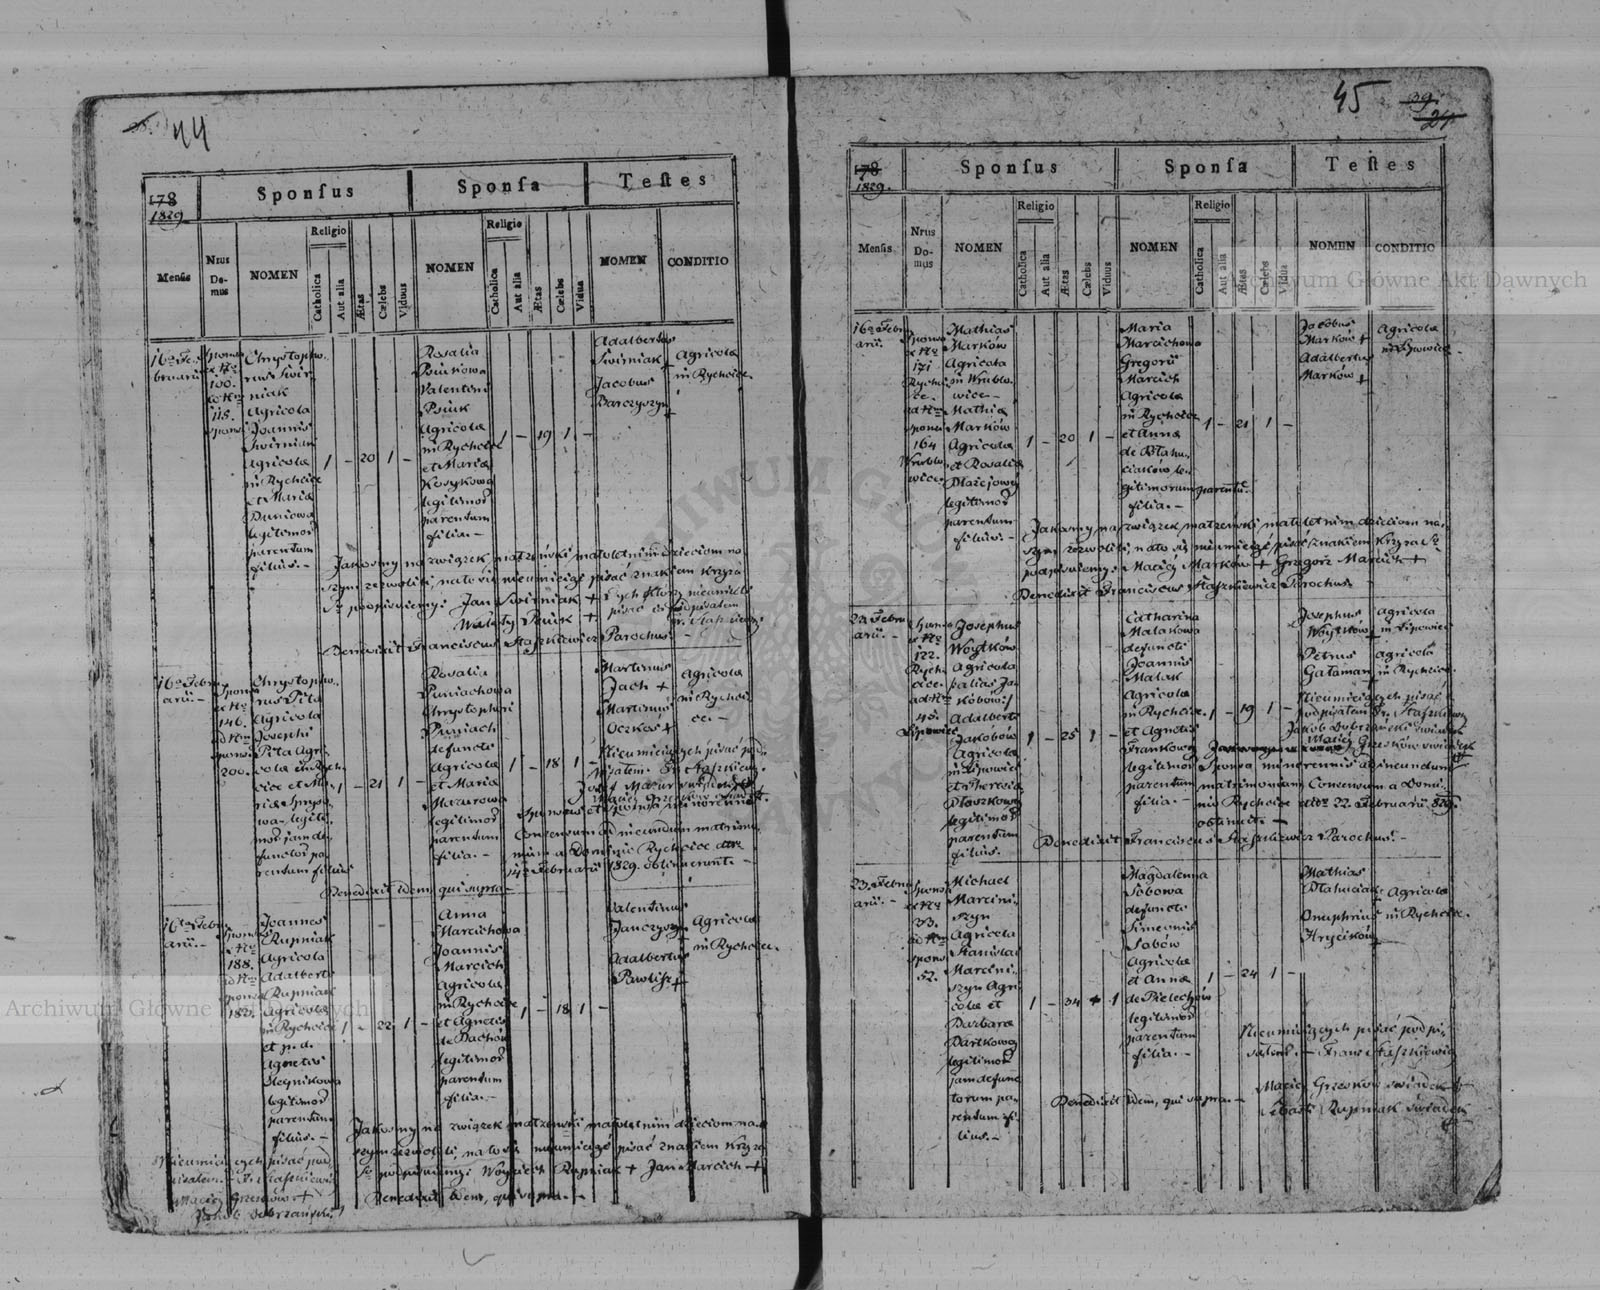 44
178
1829
Sponſus
Sponſa
Teſtes
Religio
Religio
Menſis
Nrus
Do-
mus
NOMEN
Catholica
Aut alia
Ætas
Cælebs
Viduus
NOMEN
Catholica
Aut alia
Ætas
Cælebs
Vidua
NOMEN
CONDITIO
16a Fe
bruarii
Sponsus
ex Nro
100.
ad Nro
115.
Chrystopho-
rus Swir-
niak
Agricola
Joannis
Swirniak
Agricolæ
in Rychcice
et Maria
legitimor
parentum
filius. -
1 - 20 1 -
Rosalia
Psiukowa
Valentini
Psiuk
Agricolæ
in Rychcice
et Maria
Kosykowa
legitimor
parentum
filia. -
1 - 19 1 -
Adalbertus
Swirniak
Jacobus
Barczyszyn
Agricolæ
in Rychcice
Jakośmy na związek małżeński małoletnim dzieciom na-
szym zezwolili, na to się nieumiejąc pisać znakiem krzyża
Sgo podpisujemy: Jan Swirniak +
Walenty Psiuk +
Benedixit Franciscus Staszkiewicz Parochus. -
16a Febru
arii. -
146.
200.
Chrystopho-
rus Pita
Agricola
Josephi
Pita Agri-
colæ in Rych-
cice et Ma-
legiti-
mor jam de-
functor pa-
rentum filius
1 - 21 1 -
Rosalia
Puniachowa
Chrystophori
Puniach
defuncti
Agricolæ
et Maria
Mazurowa
legitimor
parentum
filia. -
1 - 18 1 -
Martinus
Jach +
Martinus
Oczkoś +
Agricolæ
in Rychci-
ce. -
Nieumiejących pisać pod-
pisałem Fr. Staszkiewicz
Sponsus et Sponsa minorennes
Consensum ad ineundum matrimo-
nium a Dominio Rychcice ddto
14a Februarii 1829. obtinuerunt. -
Benedixit idem, qui supra -
16ta Febru
arii. -
Sponsus
ex Nro
188.
ad Nro
sponsæ
182.
Joannes
Rupniak
Agricola
Adalberti
Rupniak
Agricolæ
in Rychcice
et p. d.
Agnetis
Olejnikowa
legitimor
parentum
filius. -
1 - 22 1 -
Anna
Marcichowa
Joannis
Marcich
Agricolæ
in Rychcice
et Agnetis
de Dachów
legitimor
parentum
filia. -
1 - 18 1 -
Valentinus
Janczyszyn
Adalbertus
Pawlisz +
Agricolæ
in Rychcice.
Jakośmy na związek małżeński małoletnim dzieciom na-
szym zezwolili, na to się nieumiejąc pisać znakiem krzyża
Sgo podpisujemy: Woyciech Rupniak + Jan Marcich +
Benedixit idem, qui supra. -
Nieumiejących pisać pod-
pisałem. - Fr. Staszkiewicz
Maciej Grzesków +
Jakób Dobrzański
45
39
24
178
1829.
Sponſus
Sponſa
Teſtes
Religio
Religio
Menſis
Nrus
Do-
mus
NOMEN
Catholica
Aut alia
Ætas
Cælebs
Viduus
NOMEN
Catholica
Aut alia
Ætas
Cælebs
Vidua
NOMEN
CONDITIO
16a Febru
arii.
Sponsa
ex Nro
171
Rychci-
ce.
ad Nro
sponsi
164
Wrublo-
wice.
Mathias
Marków
Agricola
in Wrublo-
wice -
Mathia
Marków
Agricolæ
et Rosalia
Błażejowa
legitimor
parentum
filius. -
1 - 20 1 -
Maria
Marcichowa
Gregorii
Marcich
Agricolæ
in Rychcice
et Anna
de Płahu-
ciaków le-
gitimorum parentum
filia. -
1 - 21 1 -
Jacobus
Marków +
Adalbertus
Marków +
Agricolæ
Jakośmy na związek małżeński małoletnim dzieciom na-
szym zezwolili, na to się nieumiejąc pisać znakiem krzyża Sgo
podpisujemy: Maciej Marków + Grzegorz Marcich +
Benedixit Franciscus Staszkiewicz Parochus. -
23. Febru
arii. -
Sponsa
ex Nro
122.
Rych-
cice.
ad Nro
40.
Lipowice
Josephus
Woytków
Agricola
/: alias Ja-
kóbów :/
Adalberti
Jakóbów
Agricolæ
in Lipowice
et Theresia
legitimor
parentum
filius.
1 - 25 1 -
Catharina
Malakowa
defuncti
Joannis
Malak
Agricolæ
in Rychcice
et Agnetis
Frankowa
legitimor
parentum
filia. -
1 - 19 1 -
Josephus
Woytków
Petrus
Gałaman
agricola
in Lipowice
agricola
in Rychcice.
Nieumiejących pisać
podpisałem Fr. Staszkiewicz
Jakób Dobrzański świadek
Maciej Grzesków świadek
Sponsa minorennis ad ineundum
matrimonium Consensum a Domi-
nio Rychcice ddto 22. Februarii 829.
obtinuit. -
Benedixit Franciscus Staszkiewicz Parochus. -
23. Febru
arii. -
Sponsa
ex Nro
33.
ad Nro
sponsi
52.
Michael
Marcini-
szyn
Agricola
Stanislai
Marcini-
szyn Agri-
colæ et
Barbara
Bartkowa
legitimor
jam defunc-
torum pa-
rentum fi-
lius. -
1 - 34 + 1
Magdalenna
Sobowa
defuncti
Simeonis
Sobów
Agricolæ
et Anna
de Pielechów
legitimor
parentum
filia. -
1 - 24 1 -
Mathias
Płahuciak
Onuphrius
Hrycików
Agricolæ
in Rychcice.
Nieumiejących pisać podpi-
sałem. - Franc Staszkiewicz
Maciej Grzesków świadek +
Rupniak świadek
Benedixit idem, qui supra. -
Archiwum Główne Akt Dawnych
Archiwum Główne Akt Dawnych